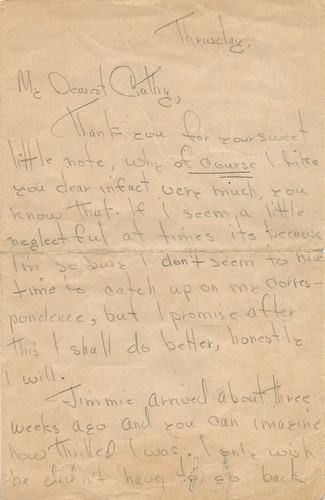 Thrusday,
My Dearest Cathy,
Thank you for your sweet
little note, why of course I like
you dear infact very much, you
know that. If I seem a little
neglectful at times its because
I'm so busy I don't seem to have
time to catch up on my corres-
pondence, but I promise after
this I shall do better, honestly
I will.
Jimmie arrived about three
weeks ago and you can imagine
how thrilled I was. I only wish
he didn't have to go back